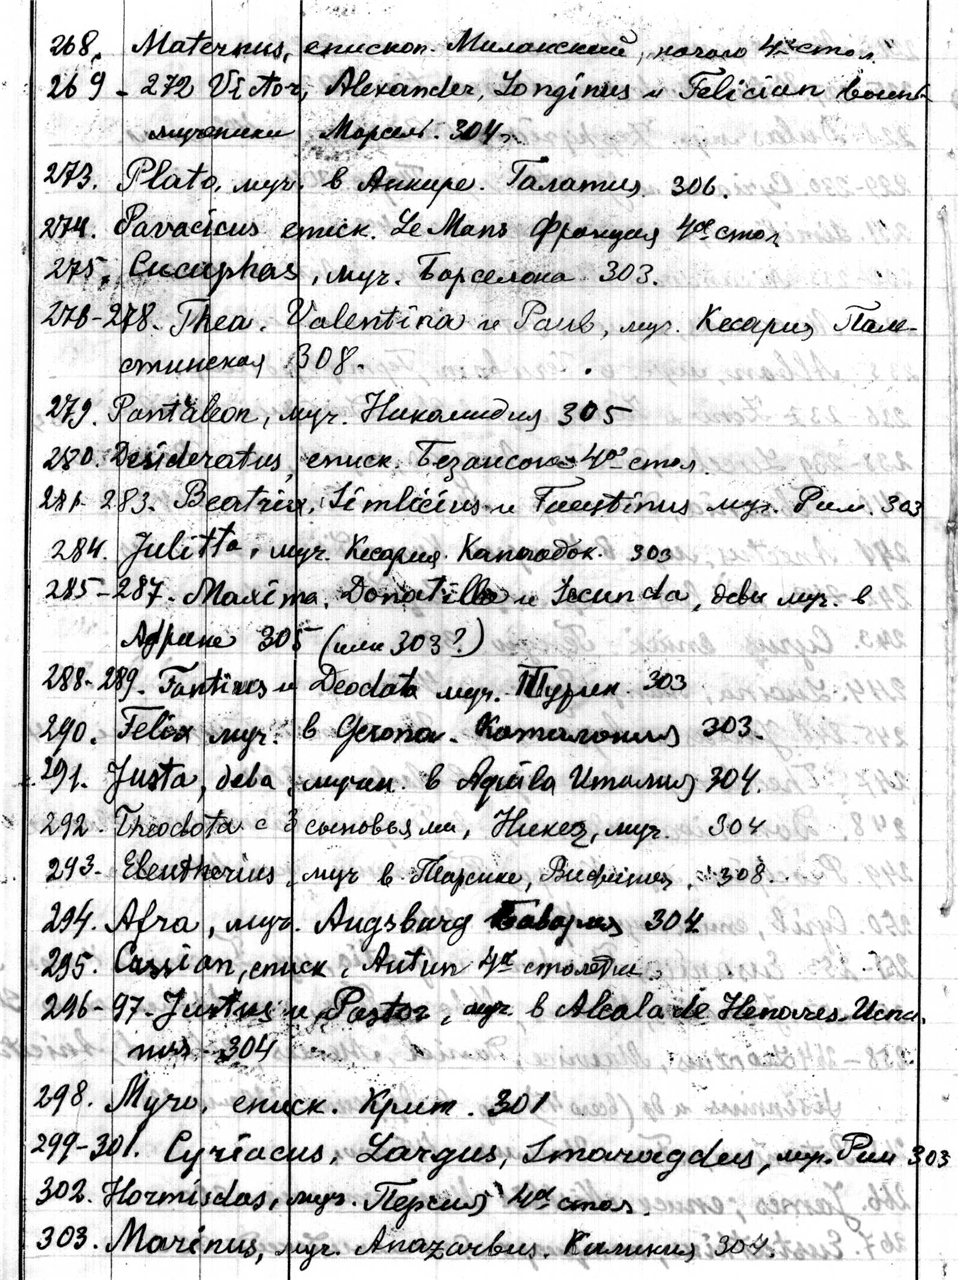 268. Maternus, епископ. Миланский, начало 4го стол.
269 - 272 Victor, Alexander, Longinus и Felician воины
мученики Марсель. 304.
273. Plato, муч. в Анкире. Галатия 306.
274. Pavacicus еписк. Le Mans Франция 4ое стол
275. Cucuphas, муч. Барселона 303.
276-278. Thea, Valentina и Paul, муч. Кесария Пале-
стинская 308.
279. Pantaleon, муч. Никомидия 305
280. Desideratus, еписк. Безансон 4ое стол.
281-283. Beatrix, Simlicius и Faustinus муч. Рим. 303
284. Julitta, муч. Кесария Каппадок. 303
285-287. Maxima, Donatilla и Secunda, девы муч. в
Африке 305 (или 303?)
288-289. Fantinus и Deodata муч. 303
290. Felix муч. в Gerona. Каталония 303.
291. Justa, дева, мучен. в Aquila Италия 304.
292. Theodota с 3 сыновьями, Никея, муч. 304
293. Eleutherius, муч в Тарсике, Вифиния, 308.
294. Afra, муч. Augsburg Бавария 304.
295. Cassian, еписк, Autun 4ое столетие.
296-97. Justus и Pastor, муч. в Alcala de Henares. Испа
ния. 304
298. Myro, еписк. Крит. 301
299-301. Cyriacus, Largus, Smaragdus, муч. Рим 303
302. Hormisdas, муч. Персия 4ое стол.
303. Marinus, муч. Anazarbus. Киликия 304.